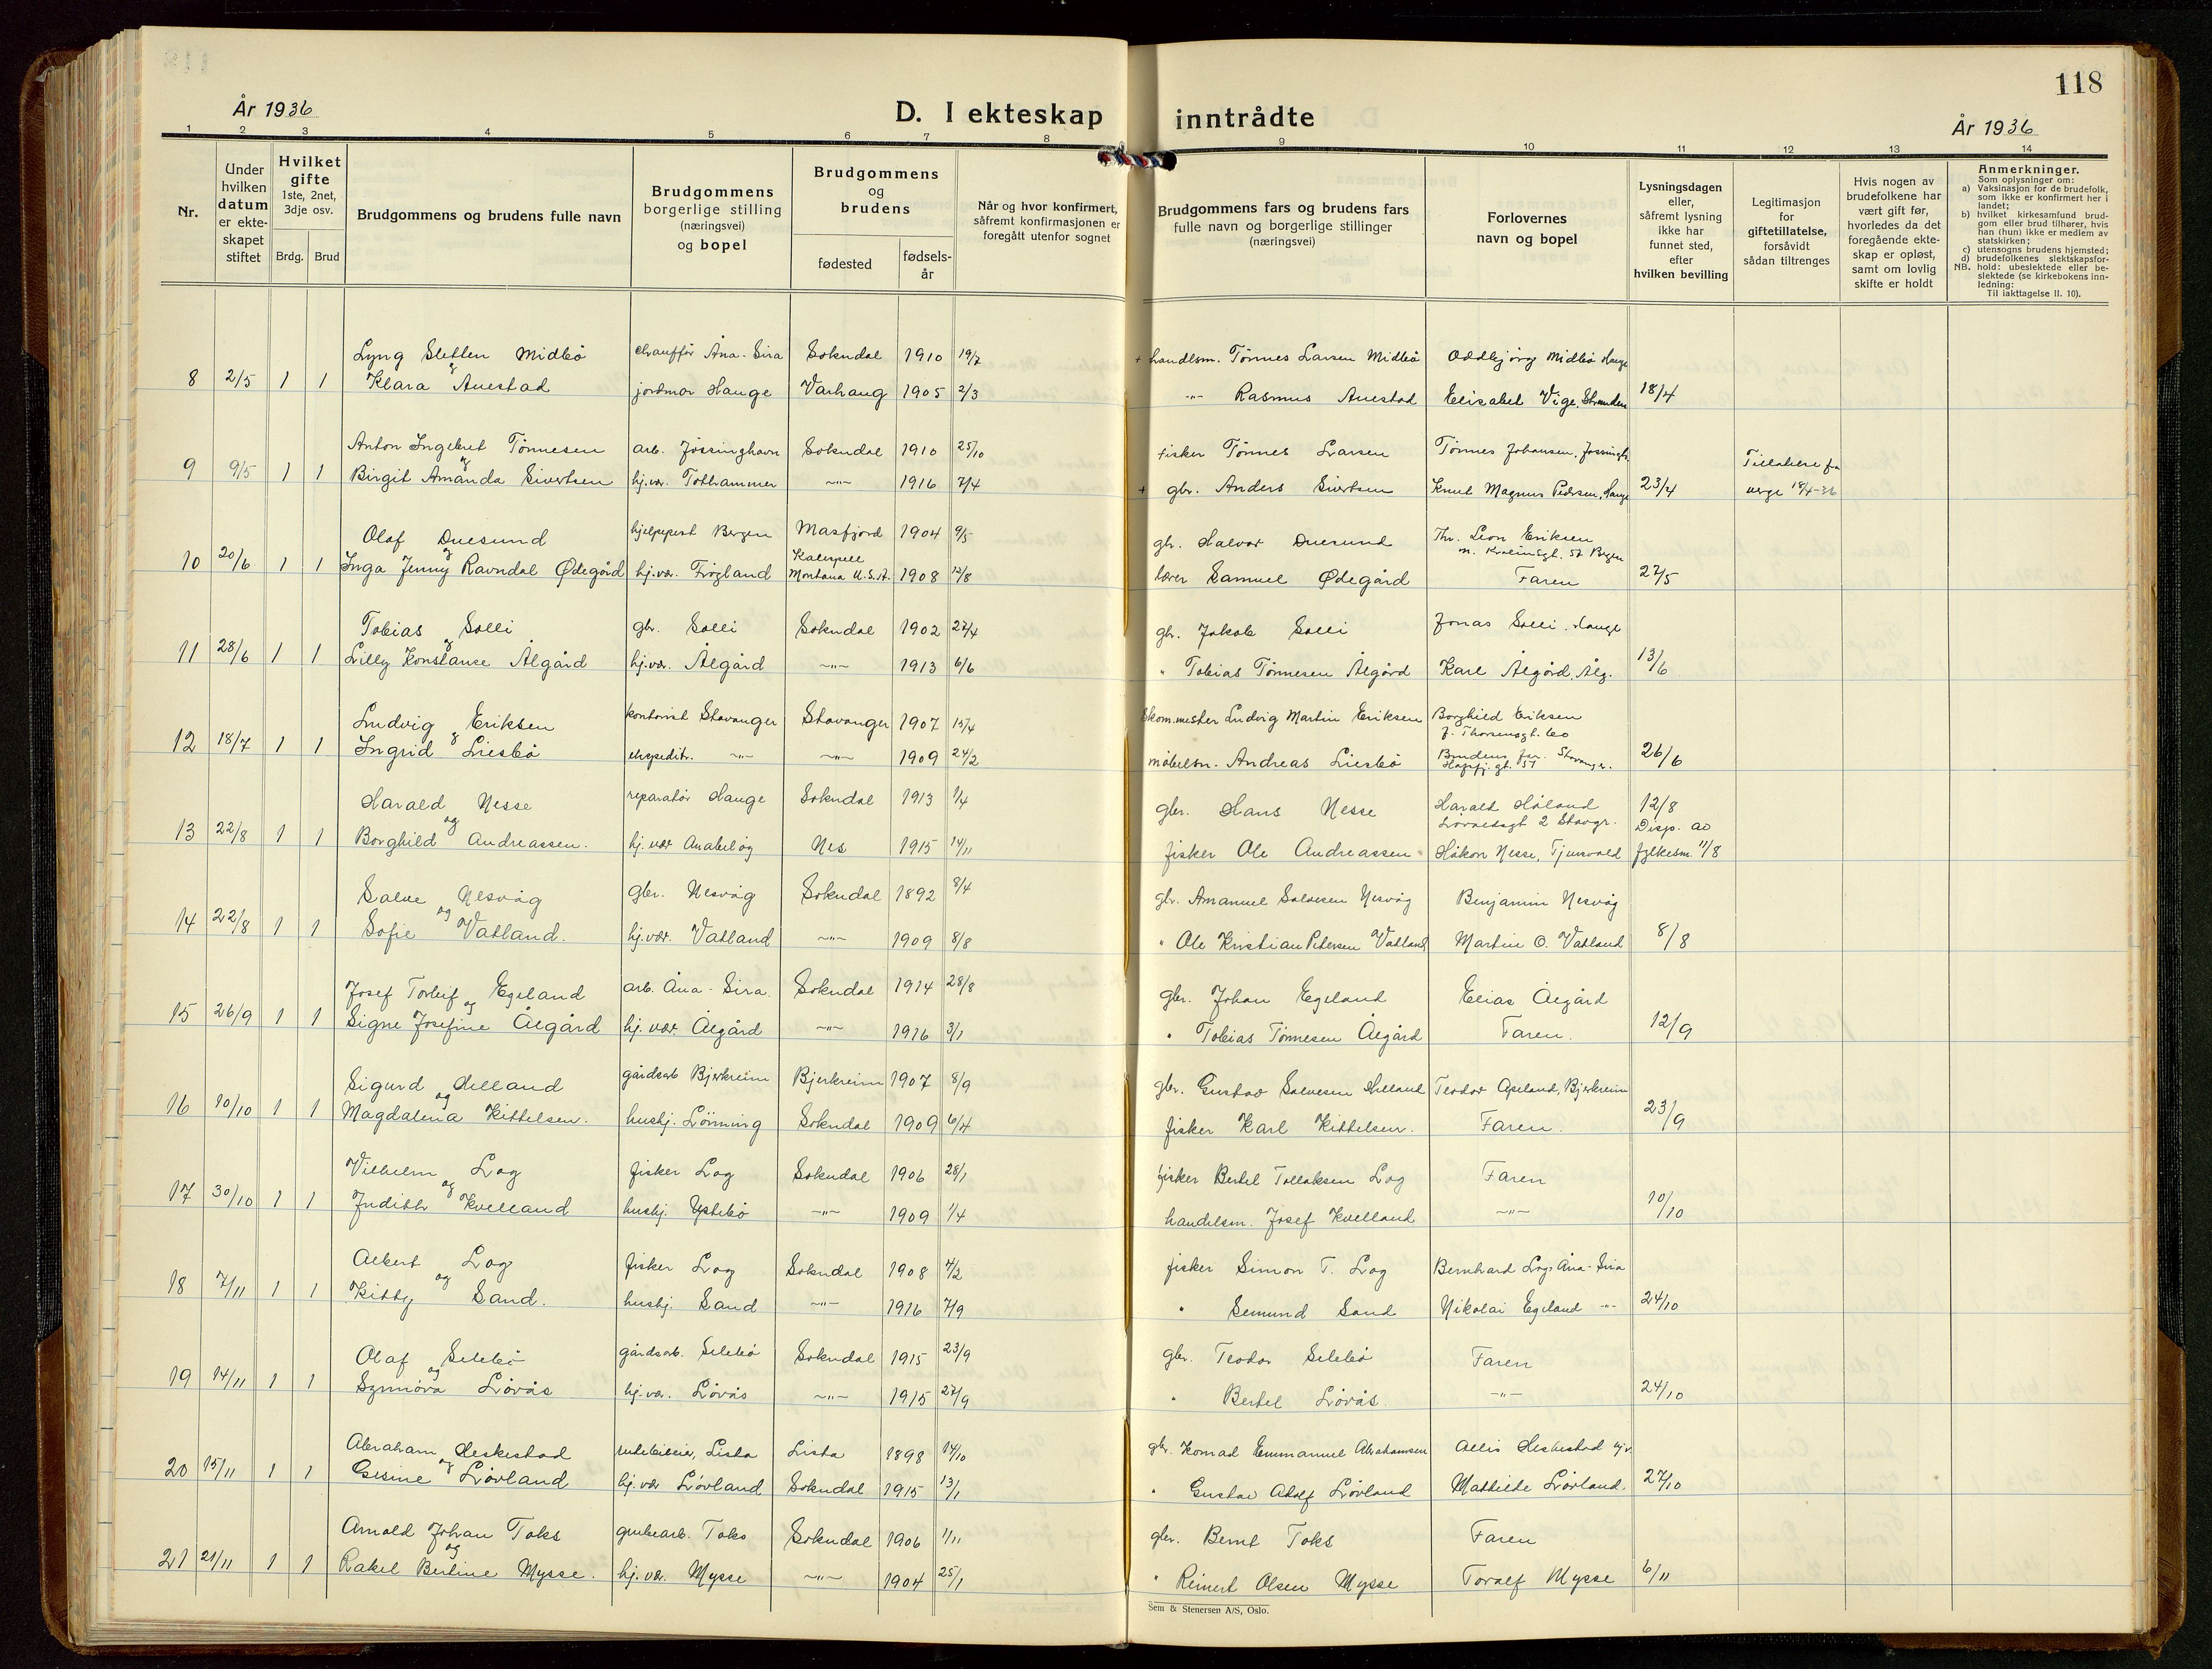 118
År 1936
D. I ekteskap inntrådte
År 1936
1 2 3 4 5 6 7 8 9 10 11 12 13 14
Nr.
Under hvilken datum er ekteskapet stiftet
Hvilket gifte 1ste, 2net, 3dje osv.
Brdg. Brud
Brudgommens og brudens fulle navn
Brudgommens borgerlige stilling (næringsvei) og bopel
Brudgommens og brudens
fødested
fødselsår
Når og hvor konfirmert, såfremt konfirmasjonen er foregått utenfor sognet
Brudgommens fars og brudens fars fulle navn og borgerlige stillinger (næringsvei)
Forlovernes navn og bopel
Lysningsdagen eller, såfremt lysning ikke har funnet sted, efter hvilken bevilling
Legitimasjon for giftetillatelse, forsåvidt sådan tiltrenges
Hvis nogen av brudefolkene har vært gift før, hvorledes da det foregående ekteskap er opløst, samt om lovlig skifte er holdt
Anmerkninger.
Som oplysninger om:
a) Vaksinasjon for de brudefolk, som ikke er konfirmert her i landet;
b) hvilket kirkesamfund brudgom eller brud tilhører, hvis han (hun) ikke er medlem av statskirken;
c) utensogns brudens hjemsted;
d) brudefolkenes slektskapsforhold: ubeslektede eller beslektede (se kirkebokens innledning:
NB.
Til iakttagelse II. 10).
Lyng Sletten Midbö chauffør Åna-Sira Sokndal 1910 19/7 + handlsm. Tönnes Larsen Midbö Oddbjörg Midbö Hauge
8 2/5 1 1 og Klara Auestad jordmor Hauge Varhaug 1905 2/3 -"- Rasmus Auestad Elisabet Vige, Stranden 18/4
Anton Ingebret Tönnesen arb. Jössinghavn Sokndal 1910 25/10 fisker Tönnes Larsen Tönnes Johansen, Jössingh.
9 9/5 1 1 og Birgit Amanda Sivertsen hj.vær. Tothammer -"- 1916 7/4 + gbr. Anders Sivertsen Knut Magnus Pedersen, Hauge 23/4 Tillatelse fra verge 18/4-36
Olaf Duesund hjelpepost Bergen Masfjord 1904 9/5 gb. Halvor Duesund Thr. Leon Eriksen
10 20/6 1 1 og Inga Jenny Ravndal Ødegård hj.vær. Frøgland Montana U.S.A. 1908 12/8 lærer Samuel Ødegård Faren 27/5
Tobias Solli gbr. Solli Sokndal 1902 27/4 gb. Jakob Solli Jonas Solli, Hauge
11 28/6 1 1 og Lilly Konstanse Ålgård hj.vær. Ålgård -"- 1913 6/6 " Tobias Tönnesen Ålgård Karl Ålgård, Ålg. 13/6
Ludvig Eriksen kontorist Stavanger Stavanger 1907 15/4 Ludvig Martin Eriksen Borghild Eriksen
12 18/7 1 1 og Ingrid Liesbö ekspeditr. -"- -"- 1909 24/2 möbelsn. Andreas Liesbö Brudens far. Stavanger. 26/6
Harald Nesse reparatör Hauge Sokndal 1913 1/4 gbr. Hans Nesse Harald Håland Lövdalsgt 2 Stavgr. 12/8
13 22/8 1 1 og Borghild Andreassen. hj. vær Anabeløg Nes 1915 14/11 fisker Ole Andreassen Håkon Nesse, Tjursvold Disp. av fylkesm. 11/8
Salve Nesvåg gbr. Nesvåg Sokndal 1892 8/4 gb. Amanuel Salvesen Nesvåg Benjamin Nesvåg
14 22/8 1 1 og Sofie Vatland. hj.vær. Vatland -"- 1909 8/8 " Ole Kristian Petersen Vatland Martin O. Vatland 8/8
Josef Torleif Egeland arb. Åna-Sira. Sokndal 1914 28/8 gbr. Johan Egeland Elias Ålgård
15 26/9 1 1 og Signe Josefine Ålgård hj. vær. Ålgård -"- 1916 3/1 " Tobias Tönnesen Ålgård Faren. 12/9
Sigurd Helland gårdsarb Bjerkreim Bjerkreim 1907 8/9 gbr. Gustav Salvesen Helland Teodor Apeland, Bjerkreim
16 10/10 1 1 og Magdalena Kittelsen. hushj. Lönning Sokndal 1909 6/4 fisker Karl Kittelsen. Faren. 23/9
Vilhelm Log fisker Log Sokndal 1906 28/1 fisker Bertel Tollaksen Log Faren
17 30/10 1 1 og Judith Kvelland hushj. Ystebö -"- 1909 1/4 handelsm. Josef Kvelland -"- 10/10
Albert Log fisker Log Sokndal 1908 4/2 fisker Simon T. Log Bernhard Log, Åna-Sira
18 7/11 1 1 og Kitty Sand. hushj. Sand -"- 1916 7/9 " Semund Sand Nikolai Egeland -"- 24/10
Olaf Selebö gårdsarb. Selebö Sokndal 1915 23/9 gbr. Teodor Selebö Faren
19 14/11 1 1 og Synnöva Lövås hj.vær. Lövås -"- 1915 27/9 " Bertel Lövås. -"- 24/10
Abraham Heskestad Lista Lista 1898 14/10 gbr. Konrad Emmanuel Abrahamsen Heskestad
20 15/11 1 1 og Gesine Lövland hj.vær Lövland Sokndal 1915 13/1 " Gustav Adolf Lövland Mathilde Lövland. 27/10
Arnold Johan Toks grubearb. Toks Sokndal 1906 1/11 gbr. Bernt Toks Faren
21 21/11 1 1 og Rakel Bertine Mysse. hj.vær. Mysse -"- 1904 25/1 " Reinert Olsen Mysse Toralf Mysse 6/11
Sem & Stenersen A/S, Oslo.